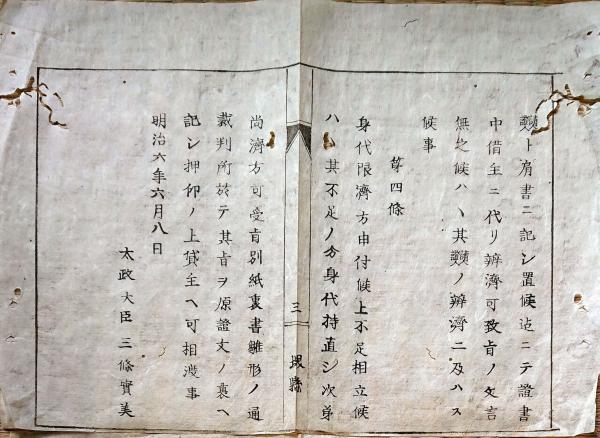 類ト肩書ニ記シ置候迄ニテ證書
中借主ニ代リ辨濟可致旨ノ文言
無之候ハヽ其類ノ辨濟ニ及ハス
候事
第四條
身代限濟方申付候上不足相立候
ハヽ其不足ノ分身代持直シ次第
三
堺縣
尚濟方可受旨別紙裏書雛形ノ通
裁判所於テ其旨ヲ原證文ノ裏ヘ
記シ押印ノ上貸主ヘ可相渡事
明治六年六月八日
太政大臣三條實美